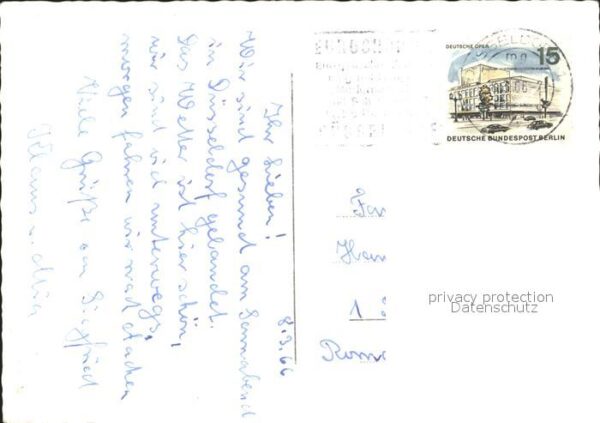 8.3.66
Ihr Lieben!
Wir sind gesund am Sonnabend
in Düsseldorf gelandet.
Das Wetter ist hier schön,
wir sind viel unterwegs,
morgen fahren wir nach Aachen
Viele Grüße an Siegfried
Klaus u.
DEUTSCHE OPER
15
DEUTSCHE BUNDESPOST BERLIN
Fam
Han
1
Rome
privacy protection
Datenschutz